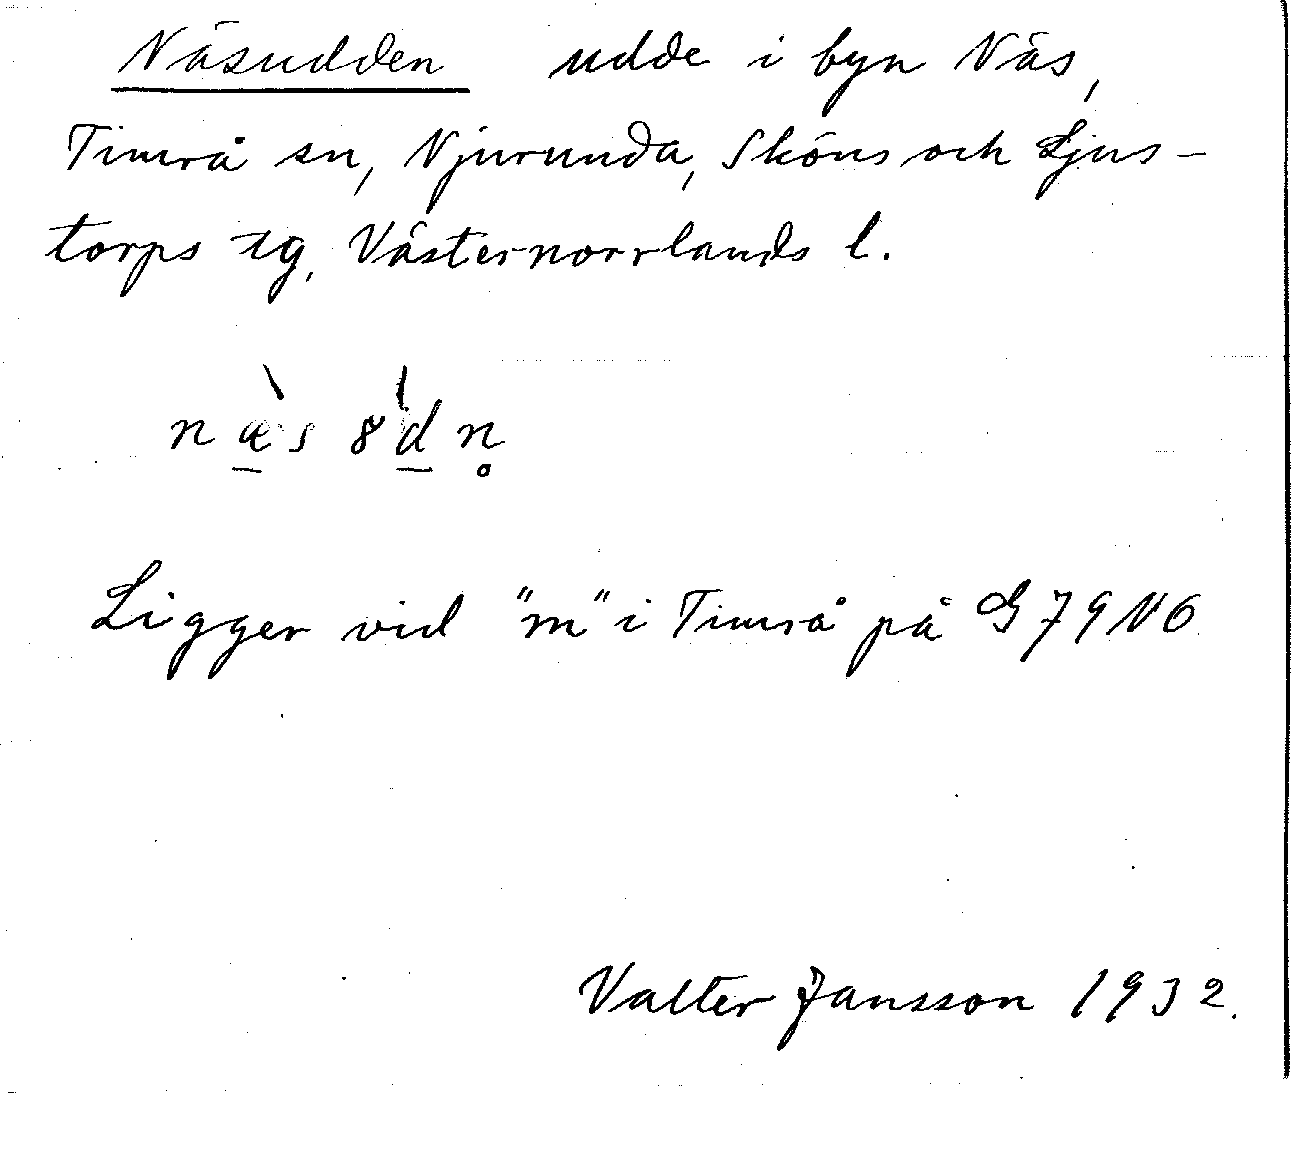 Näsudden udde i byn Näs,
Timrå sn, Njurunda, Sköns och Ljus-
torps tg, Västernorrlands l.
næ̠̀s 8d̠́n̥
Ligger vid "m" i Timrå på G 79 NO
Valter Jansson 1932.